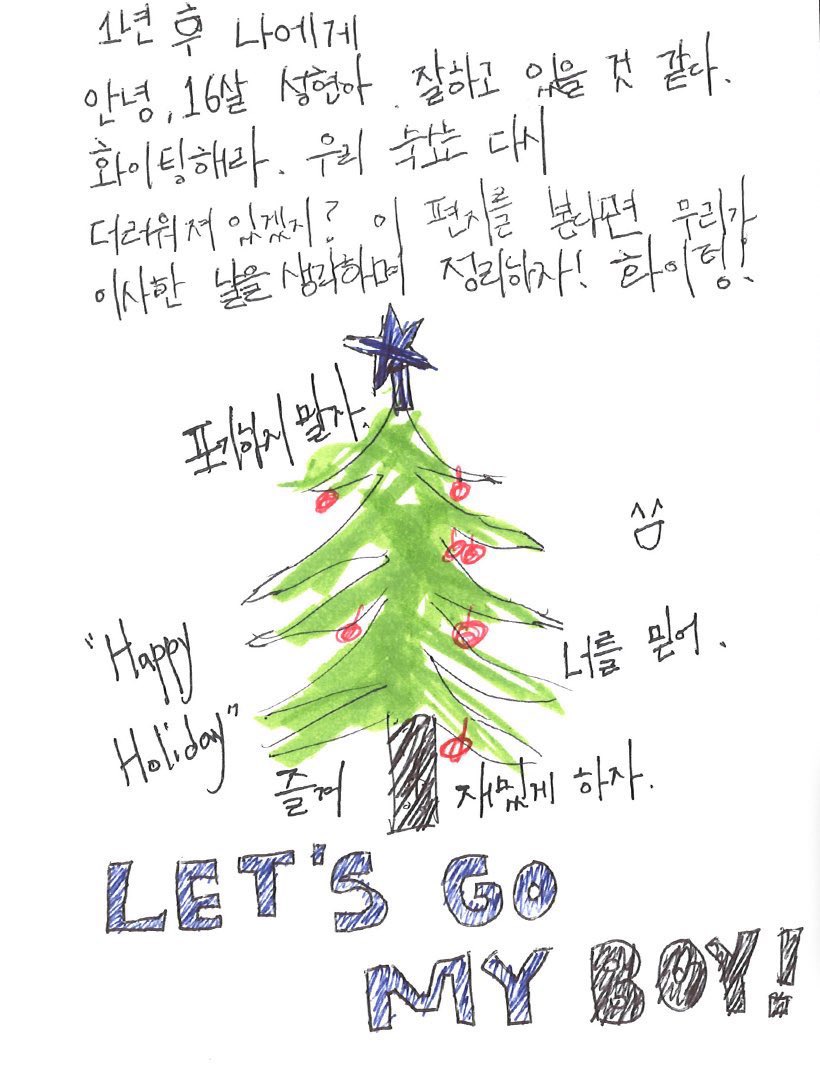 1년 후 나에게
안녕, 16살 설현아. 잘하고 있을 것 같다.
화이팅해라. 우리 숙소는 다시
더러워져 있겠지? 이 편지를 본다면 우리가
이사한 날을 생각하며 정리하자! 화이팅!
포기하지 말자.
"Happy
Holiday"
너를 믿어.
즐겨 재밌게 하자.
LET'S GO
MY BOY!